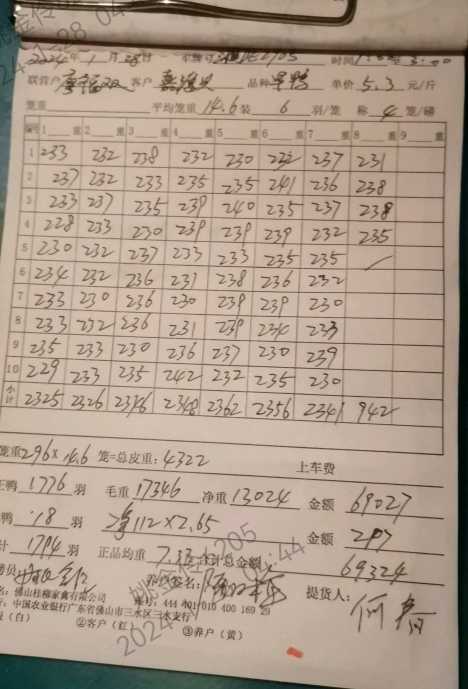 2024年1月28日 时间
联营户 客户 品种 单价 5.3 元/斤
笼重 平均笼重 14.6 装 6 羽/笼 称 4 笼/磅
编号 1 重 2 重 3 重 4 重 5 重 6 重 7 重 8 重 9 重
1 233 232 238 232 230 232 237 231
2 237 232 233 235 235 241 236 238
3 233 237 235 239 240 235 237 238
4 228 233 230 239 239 239 232 235
5 230 232 237 233 233 235 235
6 234 232 236 231 238 236 232
7 233 230 236 230 239 239 230
8 233 232 236 231 239 230 233
9 235 233 230 236 237 230 239
10 229 233 235 242 232 235 230
小计 2325 2326 2346 2348 2362 2356 2341 942
笼重 296×14.6 笼=总皮重: 4322 上车费
正鸭 1776 羽 毛重 17346 净重 13024 金额 69027
鸭 18 羽 净112×2.65 金额 297
计 1794 羽 正品均重 7.33 合计总金额 69324
养户签名: 提货人:
名: 佛山桂柳家禽有限公司 账号: 444 401 010 400 169 29
行: 中国农业银行广东省佛山市三水区三水支行
(白) ②客户(红) ③养户(黄)